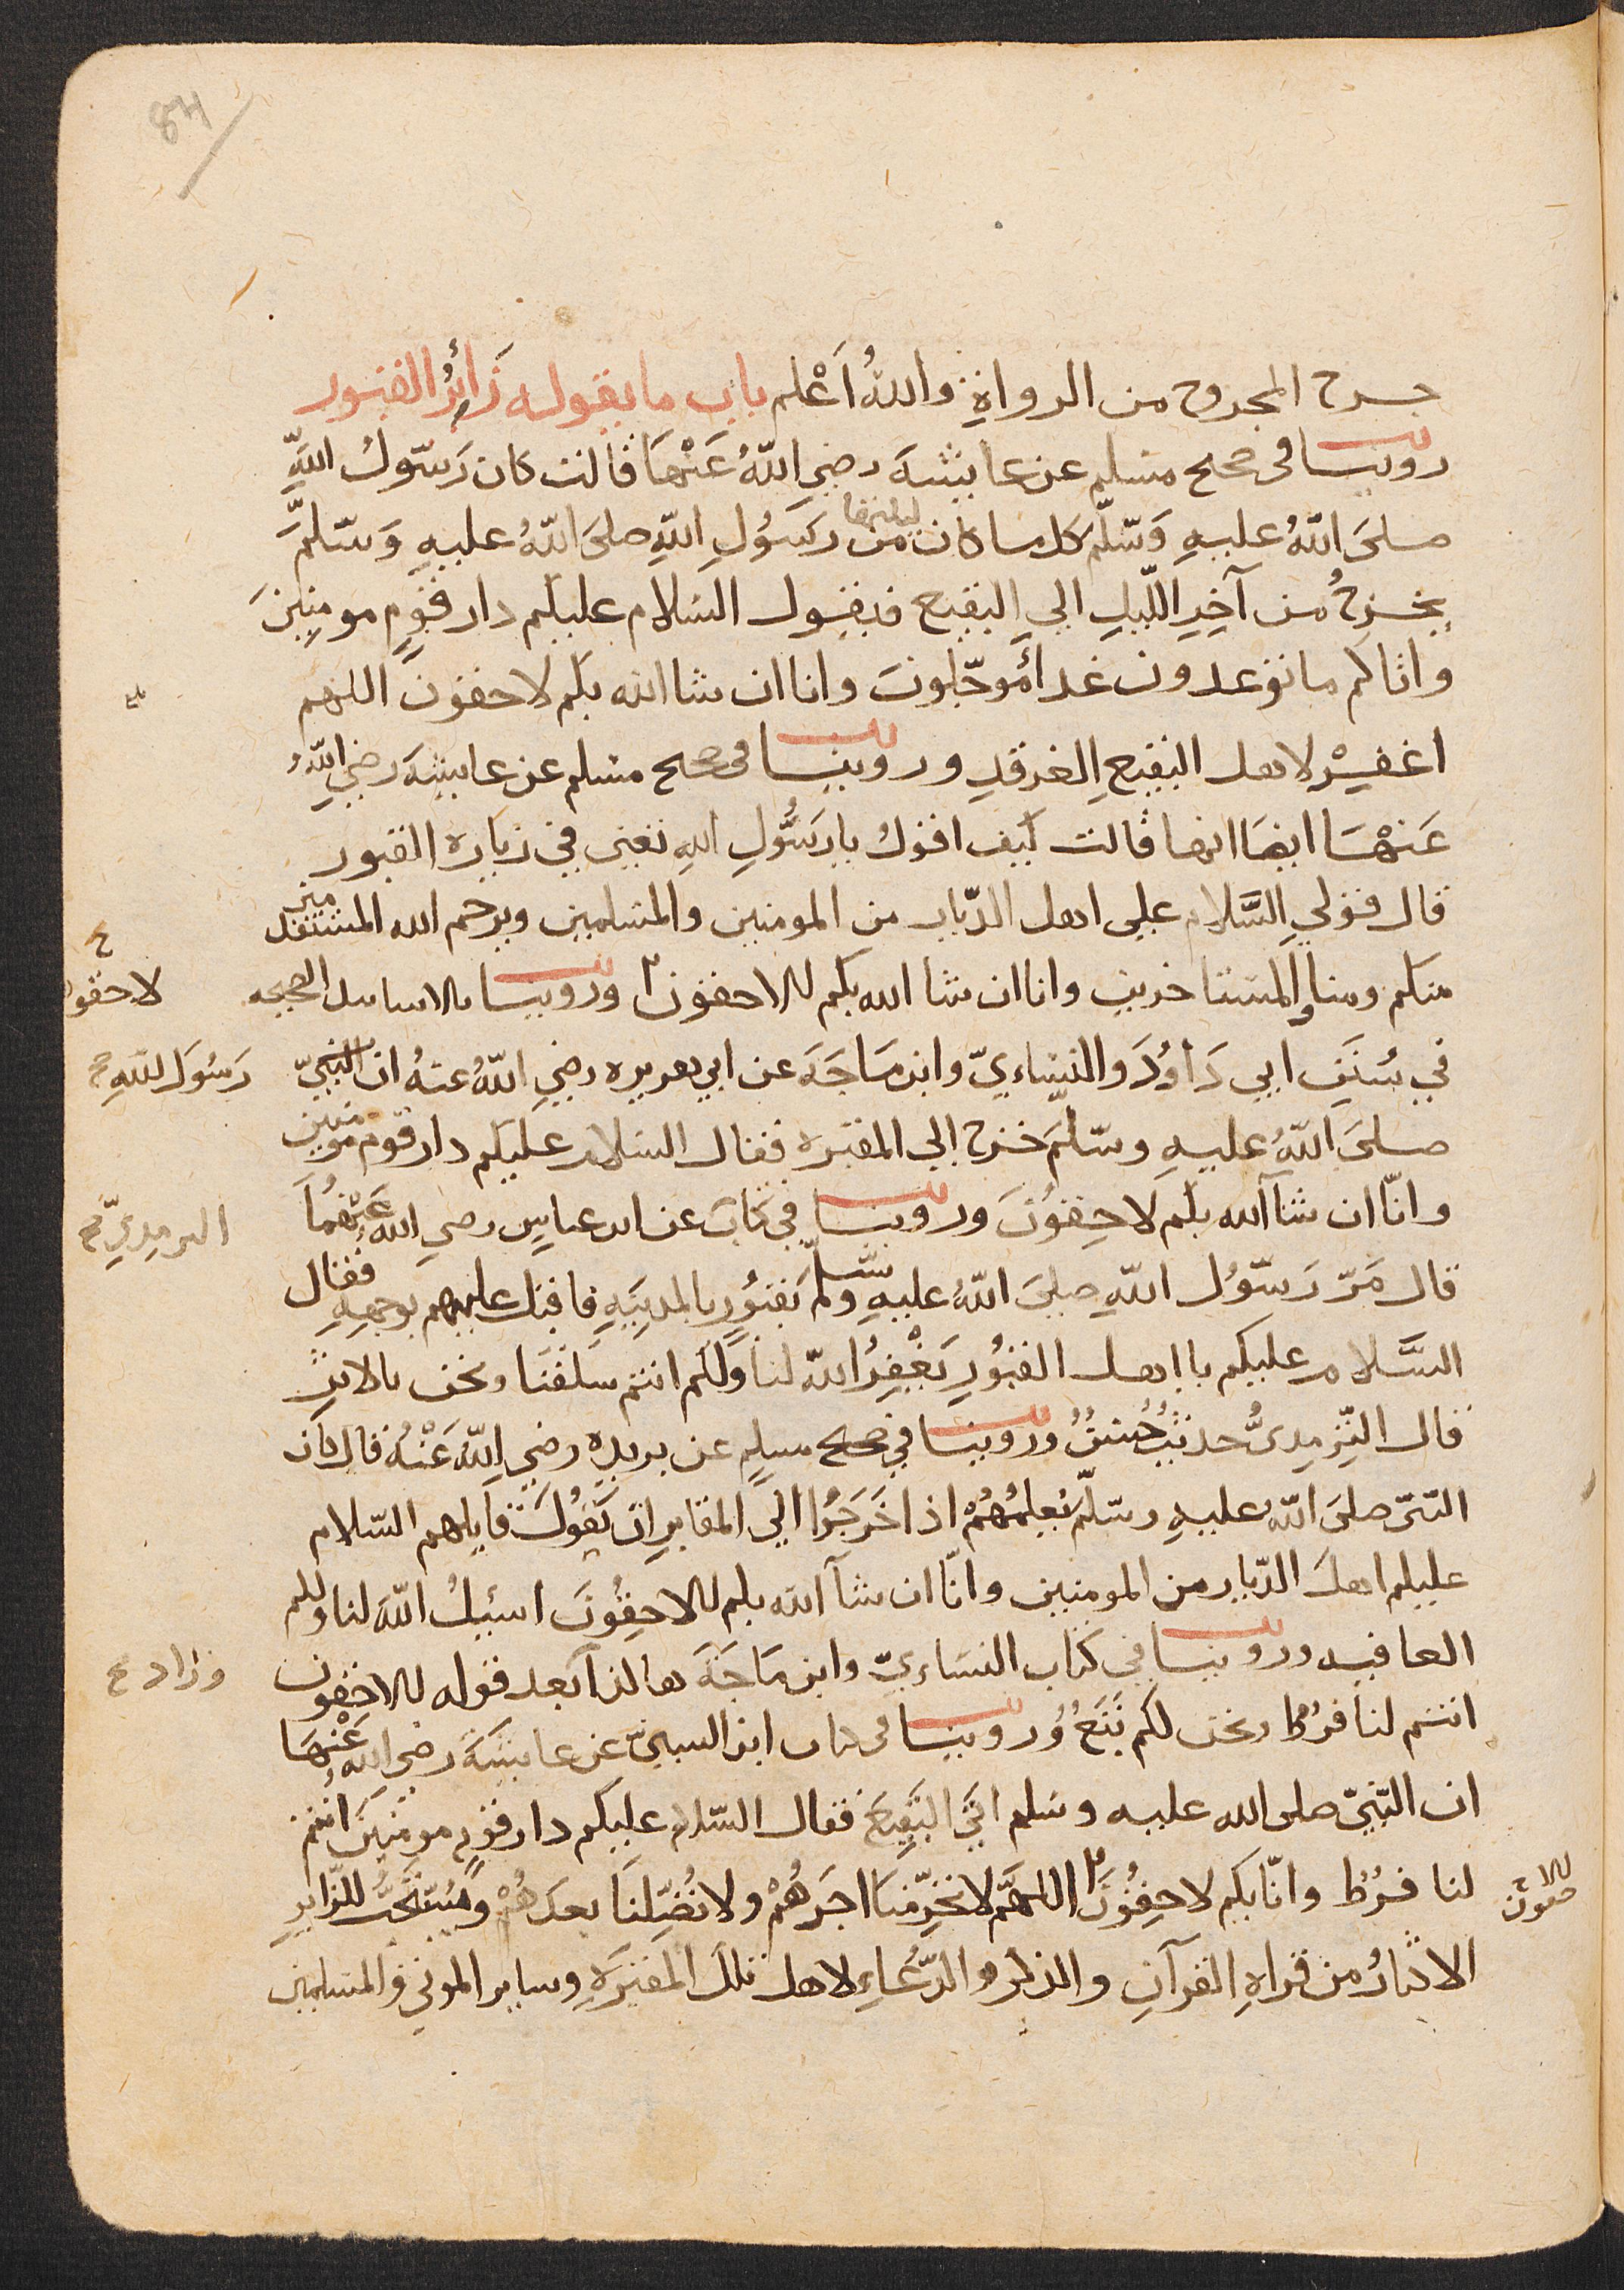 84
جرح المجروح من الرواة والله أَعْلم باب ما يقوله زَائِرُ القبور
روينا في صحيح مسلم عن عايشة رضي اللهُ عَنْها قالت كان رَسول اللهِ
صلى اللهُ عليهِ وَسلّم كل ما كان ليلتها من رسَولِ اللهِ صلىَ اللهُ عليهِ وَسلّمَ
يخرجُ من آخِرِ اللّيلِ الي البقيع فيقول السلام عليكم دار قومٍ مومنِينَ
واتاكم ما توعدون غداً مُوجّلونَ وانا ان شا الله بكم لاحقونَ اللهم
اغفِرْ لاهل البقيعِ الغرقدِ وروينا في صحيح مسلم عن عايشة رضي اللهُ
عَنْها ايضا انها قالت كيف اقول يا رسُولِ اللهِ تعني في زيارة القبور
قال قولي السَّلام علي اهل الدّيار من المومنين والمسلمين ويرحم الله المستقدمين
منكم ومنا والمستاخرين وانا ان شا الله بكم للاحقون وروينا بالاسانيد الصحيحه
لاحقون
في سُنَنِ ابي دَاوُدَ والنسّاءيّ وابن مَاجَه عن ابي هريره رضي اللهُ عنهُ ان النبيّ
رَسُولَ اللهِ
صلىَ اللهُ عليهِ وسلّمَ خرج الي المقبره فقال السلام عليكم دار قوم مومنين
وانّا ان شاآلله بكم لاحِقُونَ وروينا في كتاب عن ابن عباسٍ رضي الله عَنْهُمَا
الترمِذيّ
قال مَرّ رَسوُل اللهِ صلىَ اللهُ عليهِ وسلم بَقبُورٍ بالمدينَهِ فاقبل عليهم بوجهِهِ فقال
السَّلام عليكم يا اهل القبُورِ يَغْفِرُ اللهُ لنا وَلَكم انتم سَلفُنَا ونحن بالاثرِ
قال التِّرمِدىُّ حديثٌ حُسنٌ وروينا في صحيح مسلمٍ عن بريده رضي اللهُ عَنْهُ قال كان
النبّى صلىَ اللهُ عليهِ وسلّم يُعلمُهُمْ اذا خَرَجُوا اليَ المقابرِ ان يَقُولَ قايلهم السّلام
عليكم اهلَ الدّيار من المومنين وانّا ان شاآ الله بكم للاحِقُونَ اسئلُ اللهَ لنا ولكم
العافيه وروينا في كتاب النسَاءيّ وابن مَاجَهَ هاكذا بَعد قوله للاحقون
وزاد
انتم لنا فرُط ونحن لكم تَبَعُ وُروينا في كتاب ابن السنيّ عن عايشَةَ رضي الله عَنْهَا
ان النّبيّ صلى الله عليه وسَلم اتي البَقِيعَ فقال السّلام عليكم دار قومٍ مومنينَ انتم
لنا فرُط وانّا بكم لاحِقُونَ اللهمّ لا تحرِمْنا اجَرهُمْ ولا تُضِلنَا بعدهُمْ ويُستحَبُّ للزّايرِ
للاحقون
الاكثارُ من قراةِ القرآنِ والذكر والدُّعاءِ لاهل تلك المقبرَةِ وساير الموتي والمسلمين